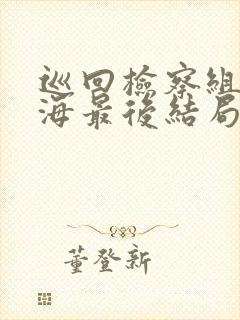 巡回檢察組
海最後結局
董登新